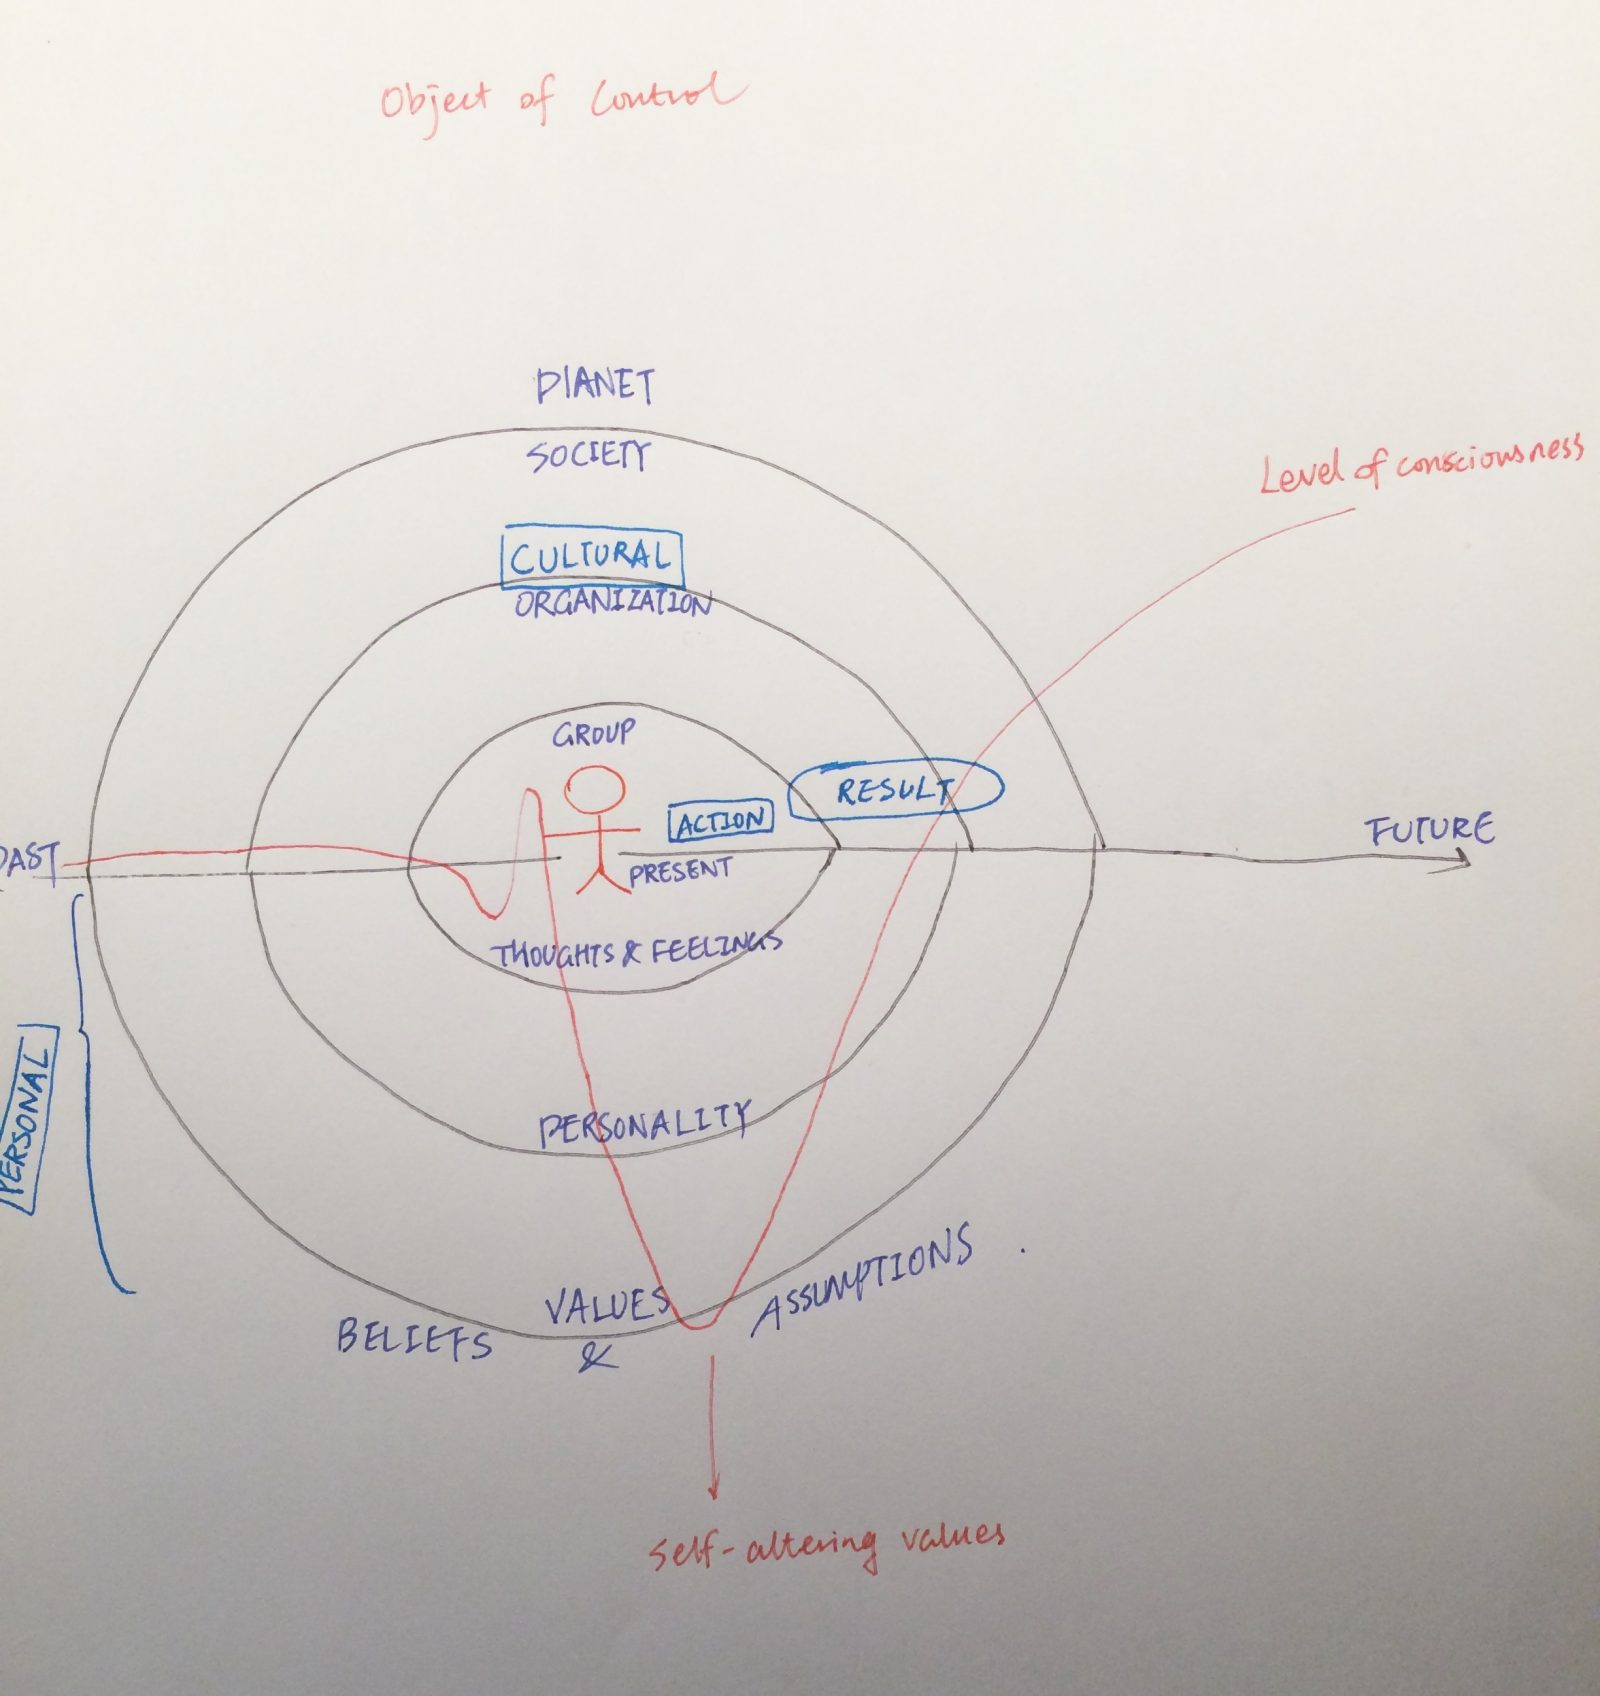 Object of Control
PLANET
SOCIETY
Level of consciousness
CULTURAL
ORGANIZATION
GROUP
RESULT
ACTION
FUTURE
PAST
PRESENT
THOUGHTS & FEELINGS
PERSONAL
PERSONALITY
VALUES
ASSUMPTIONS
BELIEFS
&
Self-altering values